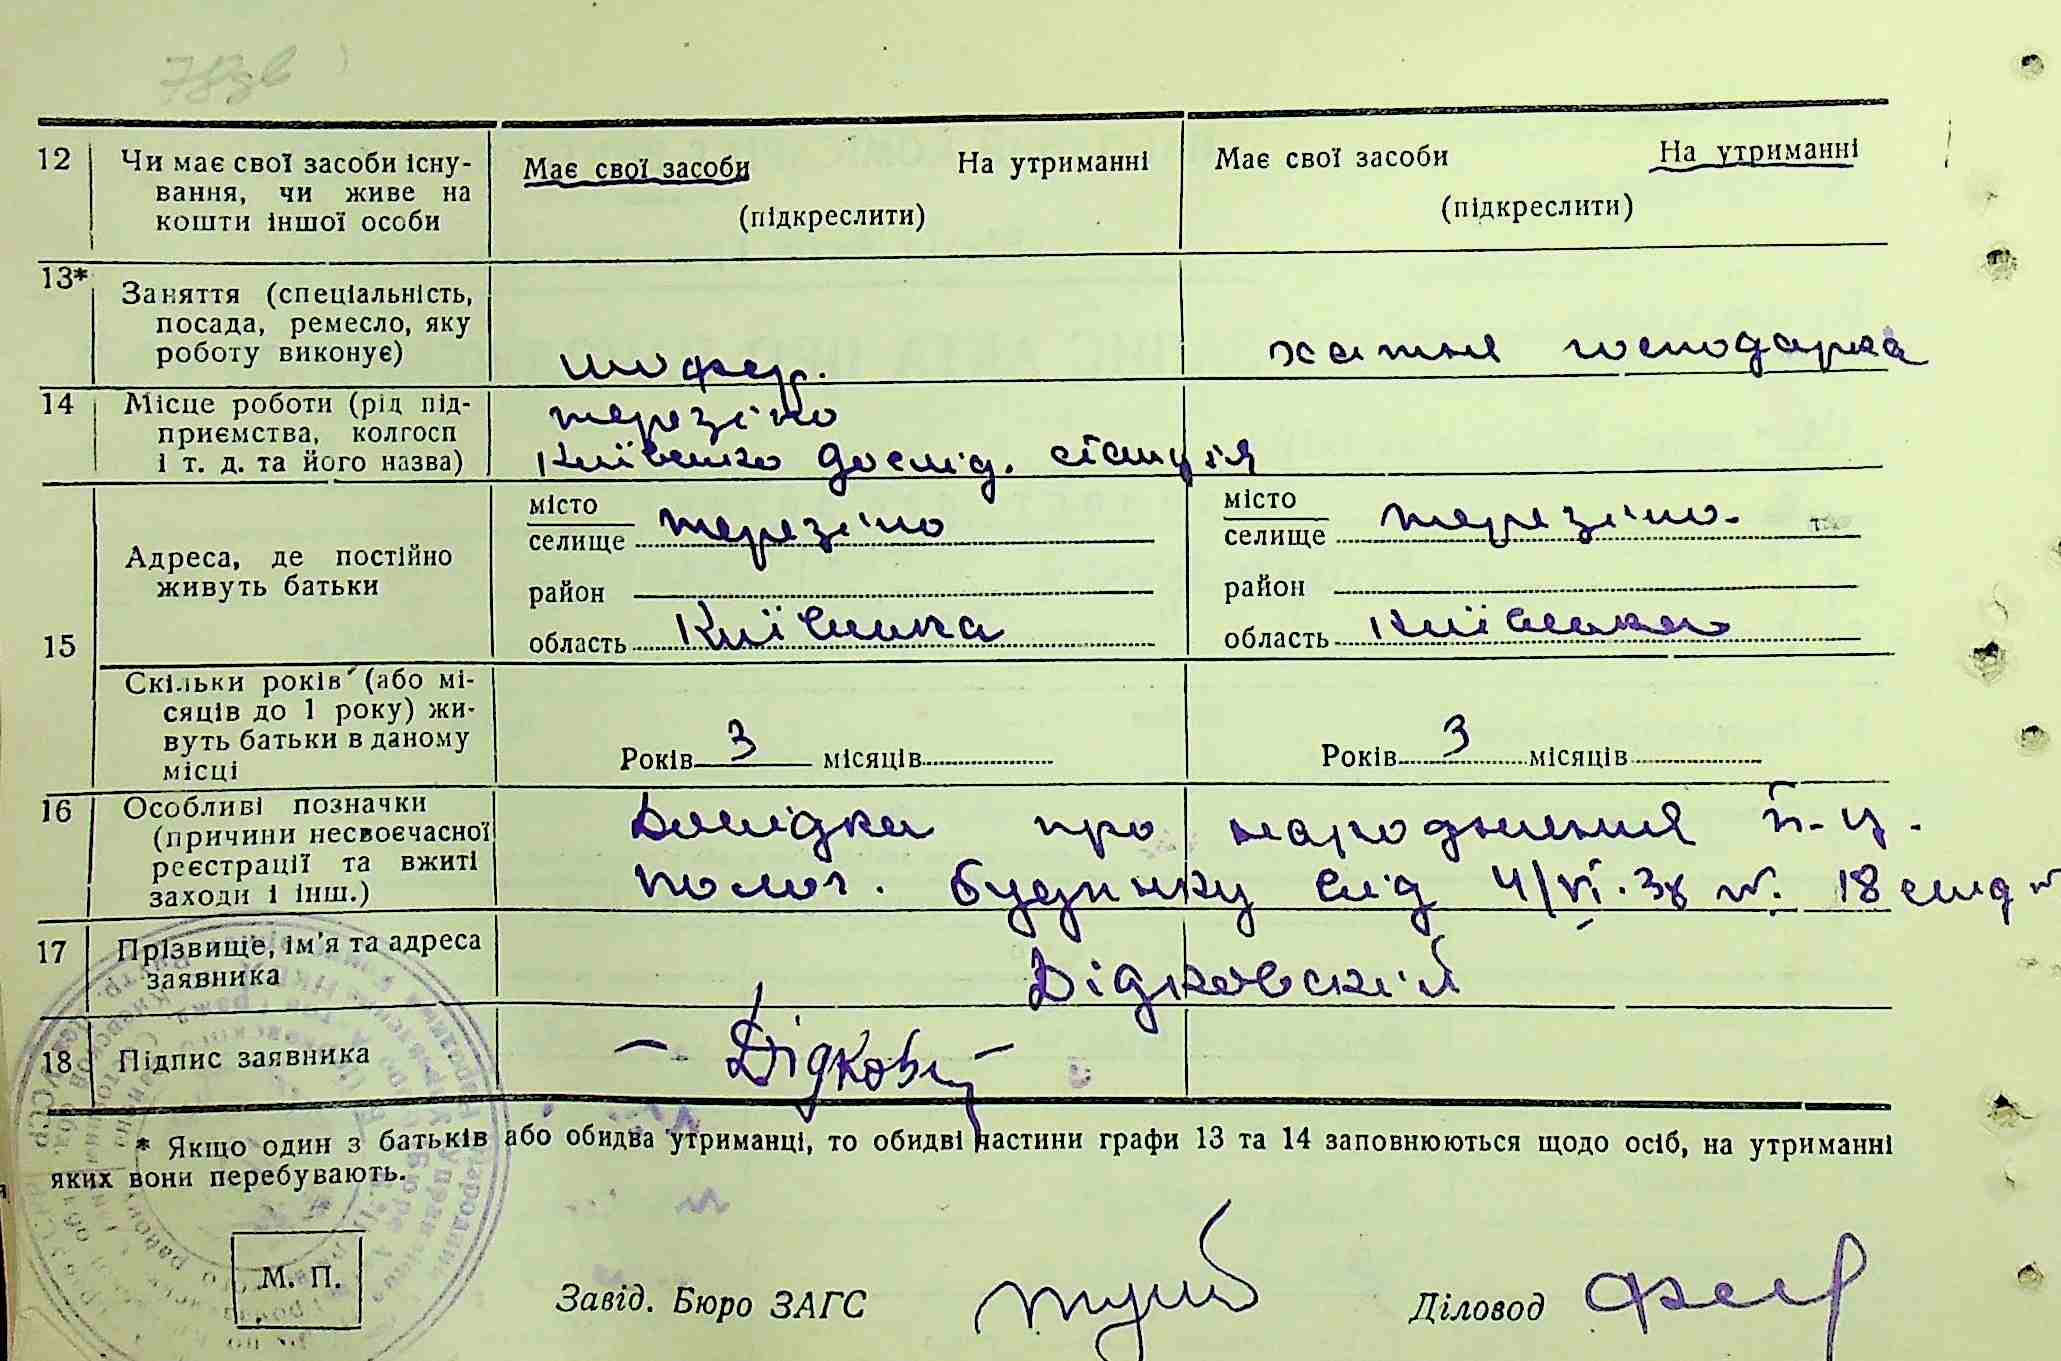 12 Чи має свої засоби існу- Має свої засоби На утриманні Має свої засоби На утриманні
вання, чи живе на
кошти іншої особи (підкреслити) (підкреслити)
13* Заняття (спеціальність,
посада, ремесло, яку
роботу виконує) шофер. хатня господарка
14 Місце роботи (рід під- терезіно
приємства, колгосп
і т. д. та його назва) Київсько дослід. станція
15 Адреса, де постійно
живуть батьки
місто
селище терезіно
район
область Київська
місто
селище терезіно.
район
область Київська
Скільки років (або мі-
сяців до 1 року) жи-
вуть батьки в даному
місці
Років 3 місяців Років 3 місяців
16 Особливі позначки Довідка про народження Б-Ц.
(причини несвоєчасної
реєстрації та вжиті
заходи і інш.) полог. будинку від 4/VI.38 18
17 Прізвище, ім'я та адреса
заявника Дідковскій
18 Підпис заявника – Дідковс –
* Якщо один з батьків або обидва утриманці, то обидві частини графи 13 та 14 заповнюються щодо осіб, на утриманні
яких вони перебувають.
М. П.
Завід. Бюро ЗАГС Діловод